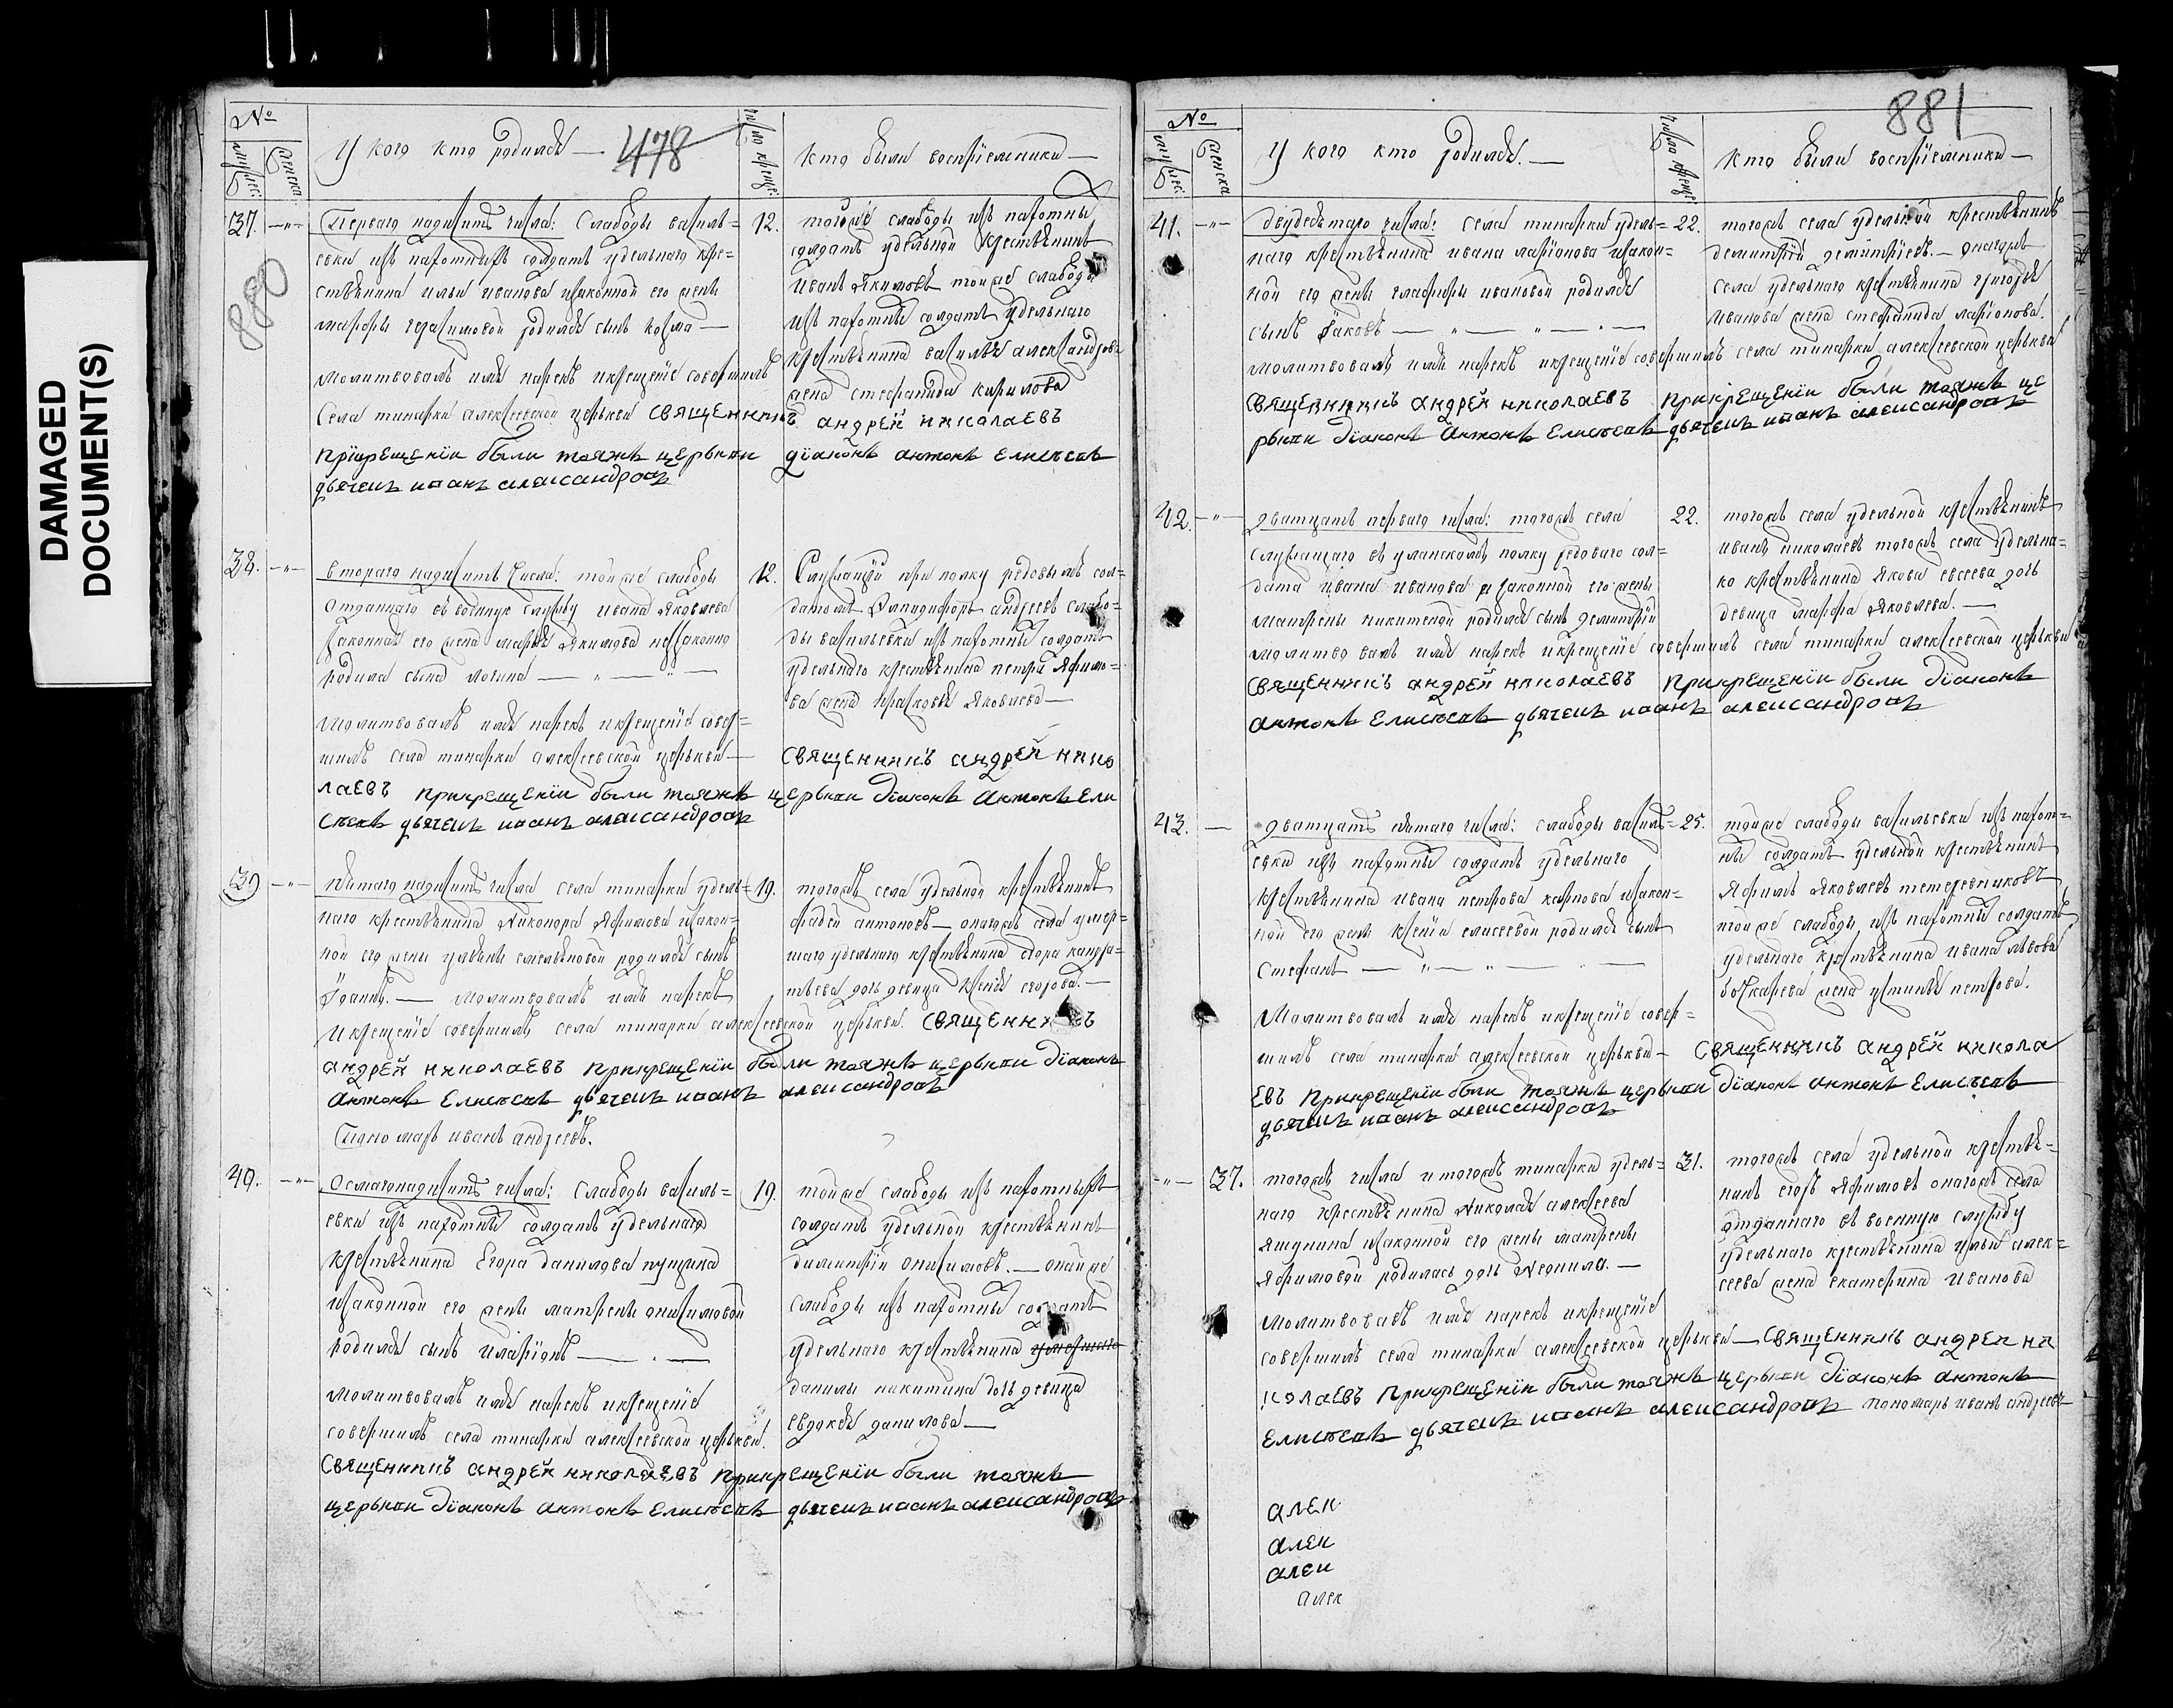 DAMAGED
DOCUMENT(S)
№
мужес:
женска
У кого кто родился — 478
число креще:
Кто были восприемники —
880
37. —"— Перваго надесить числа: Слабоды василь= 12.
евки изъ пахотныхъ солдатъ удельнаго кре=
стьянина ильи иванова изаконной его жены
марфы герасимовой родился сынъ козма —
Молитвовалъ имя нарекъ икрещение совершилъ
Села тинарки алексеевской церькви священникъ андрей николаевъ
прикрещении были тояже церькви диаконъ антонъ Елисеевъ
дьячекъ иванъ александровъ
тойже слабоды изъ пахотны
солдатъ удельной крестьянинъ
Иванъ Якимовъ тойже слабоды
изъ пахотны солдатъ удельнаго
крестьянина василья александрова
жена стефанида карилова
38. —"— втораго надесить Числа: тойже слабоды 12.
отданнаго въ военную службу ивана Яковлева
законная его жена марья Якимова незаконно
родила сына логина — " — " —
Молитвовалъ имя нарекъ икрещение совер=
шилъ села тинарки алексеевской церькви —
священникъ андрей нико
лаевъ прикрещении были тояже церькви диаконъ Антонъ Ели
сеевъ дьячекъ иванъ александровъ
Служащий при полку редовымъ сол=
датомъ андреевъ слабо=
ды васильевки изъ пахотны солдатъ
удельнаго крестьянина петра Яфимо=
ва жена прасковья Яковлева —
39 —"— пятаго надесить числа села тинарки удель= 19.
наго крестьянина Никонора Яфимова изакон=
ной его жены емельяновой родился сынъ
Иоаннъ. — Молитвовалъ имя нарекъ
икрещение совершилъ села тинарки алексеевской церькви. священникъ
андрей николаевъ прикрещении были тояже церькви диаконъ
Антонъ Елисеевъ дьячекъ иванъ александровъ
Пономарь иванъ андреевъ.
тогожъ села удельной крестьянинъ
фадей антоновъ — онагожъ села умер=
шаго удельнаго крестьянина егора кондра=
тьева дочь девица ксения егорова. —
40. —"— Осмагонадесить числа: Слабоды василь= 19.
евки изъ пахотны солдатъ удельнаго
крестьянина Егора данилова пущина
изаконной его жены матрены онисимовой
родился сынъ иларионъ — . —
Молитвовалъ имя нарекъ икрещение
совершилъ села тинарки алексеевской церькви.
Священникъ андрей николаевъ прикрещении были тояже
церькви диаконъ антонъ Елисеевъ дьячекъ иванъ александровъ
тойже слабоды изъ пахотныхъ
солдатъ удельной крестьянинъ
димитрий онисимовъ. — онойже
слабоды изъ пахотны солдатъ
удельнаго крестьянина умершаго
данилы никитина дочь девица
евдокея данилова —
№
мужес:
женска
У кого кто родился. —
число креще
881
Кто были восприемники —
41. —"— двудесятаго числа: села тинарки удель= 22.
наго крестьянина ивана ларионова изакон=
ной его жены гласфиры ивановой родился
сынъ Иаковъ — " — " — " —
молитвовалъ имя нарекъ икрещение совершилъ села тинарки алексеевской церькви
священникъ андрей николаевъ прикрещении были тояже це
рькви диаконъ Антонъ Елисеевъ дьячекъ иванъ александровъ
тогожъ села удельной крестьянинъ
демитрий демитриевъ. — онагожъ
села удельнаго крестьянина григорья
иванова жена стефанида ларионова.
42. —"— дватцать перваго числа: тогожъ села 22.
служащаго въ уланскомъ полку редоваго сол=
дата ивана иванова изаконной его жены
матрены никитеной родился сынъ демитрий
молитвовалъ имя нарекъ икрещение совершилъ села тинарки алексеевской церькви
священникъ андрей николаевъ прикрещении были диаконъ
антонъ Елисеевъ дьячекъ иванъ александровъ
тогожъ села удельной крестьянинъ
иванъ николаевъ тогожъ села удельна=
ко крестьянина Якова евсеева дочь
девица марфа Яковлева. —
43. — дватцать пятаго числа: слабоды василь= 25.
евки изъ пахотны солдатъ удельнаго
крестьянина ивана петрова карпова изакон=
ной его жены ксении елисеевой родился сынъ
Стефанъ — " — " — " —
Молитвовалъ имя нарекъ икрещение совер=
шилъ села тинарки алексеевской церькви — священникъ андрей никола
евъ прикрещении были тояже церькви диаконъ антонъ Елисеевъ
дьячекъ иванъ александровъ
тойже слабоды васильевки изъ пахот=
ны солдатъ удельной крестьянинъ
Яфимъ Яковлевъ тетеревниковъ
тойже слабоды изъ пахотны солдатъ
удельнаго крестьянина ивана львова
бочкарева жена устинья петрова.
—"— 37. тогожъ числа итогожъ тинарки удель= 31.
наго крестьянина Николая алексеева
Яшунина изаконной его жены матрены
Яфимовой родилась дочь Неонила. —
Молитвовавъ имя нарекъ икрещение
совершилъ села тинарки алексеевской церькви — священникъ андрей ни
колаевъ прикрещении были тояже церькви диаконъ антонъ
Елисеевъ дьячекъ иванъ александровъ пономарь иванъ андреевъ
тогожъ села удельной крестья=
нинъ егоръ Яфимовъ онагожъ села
отданнаго въ военную службу
удельнаго крестьянина ильи алек=
сеева жена екатерина иванова
алек
алек
алек
алек